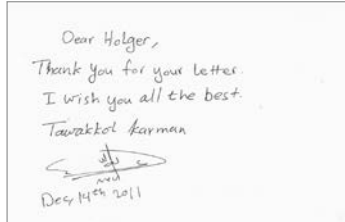 Dear Holger,
Thank you for your letter.
I wish you all the best.
Tawakkol Karman
Dec, 14th 2011